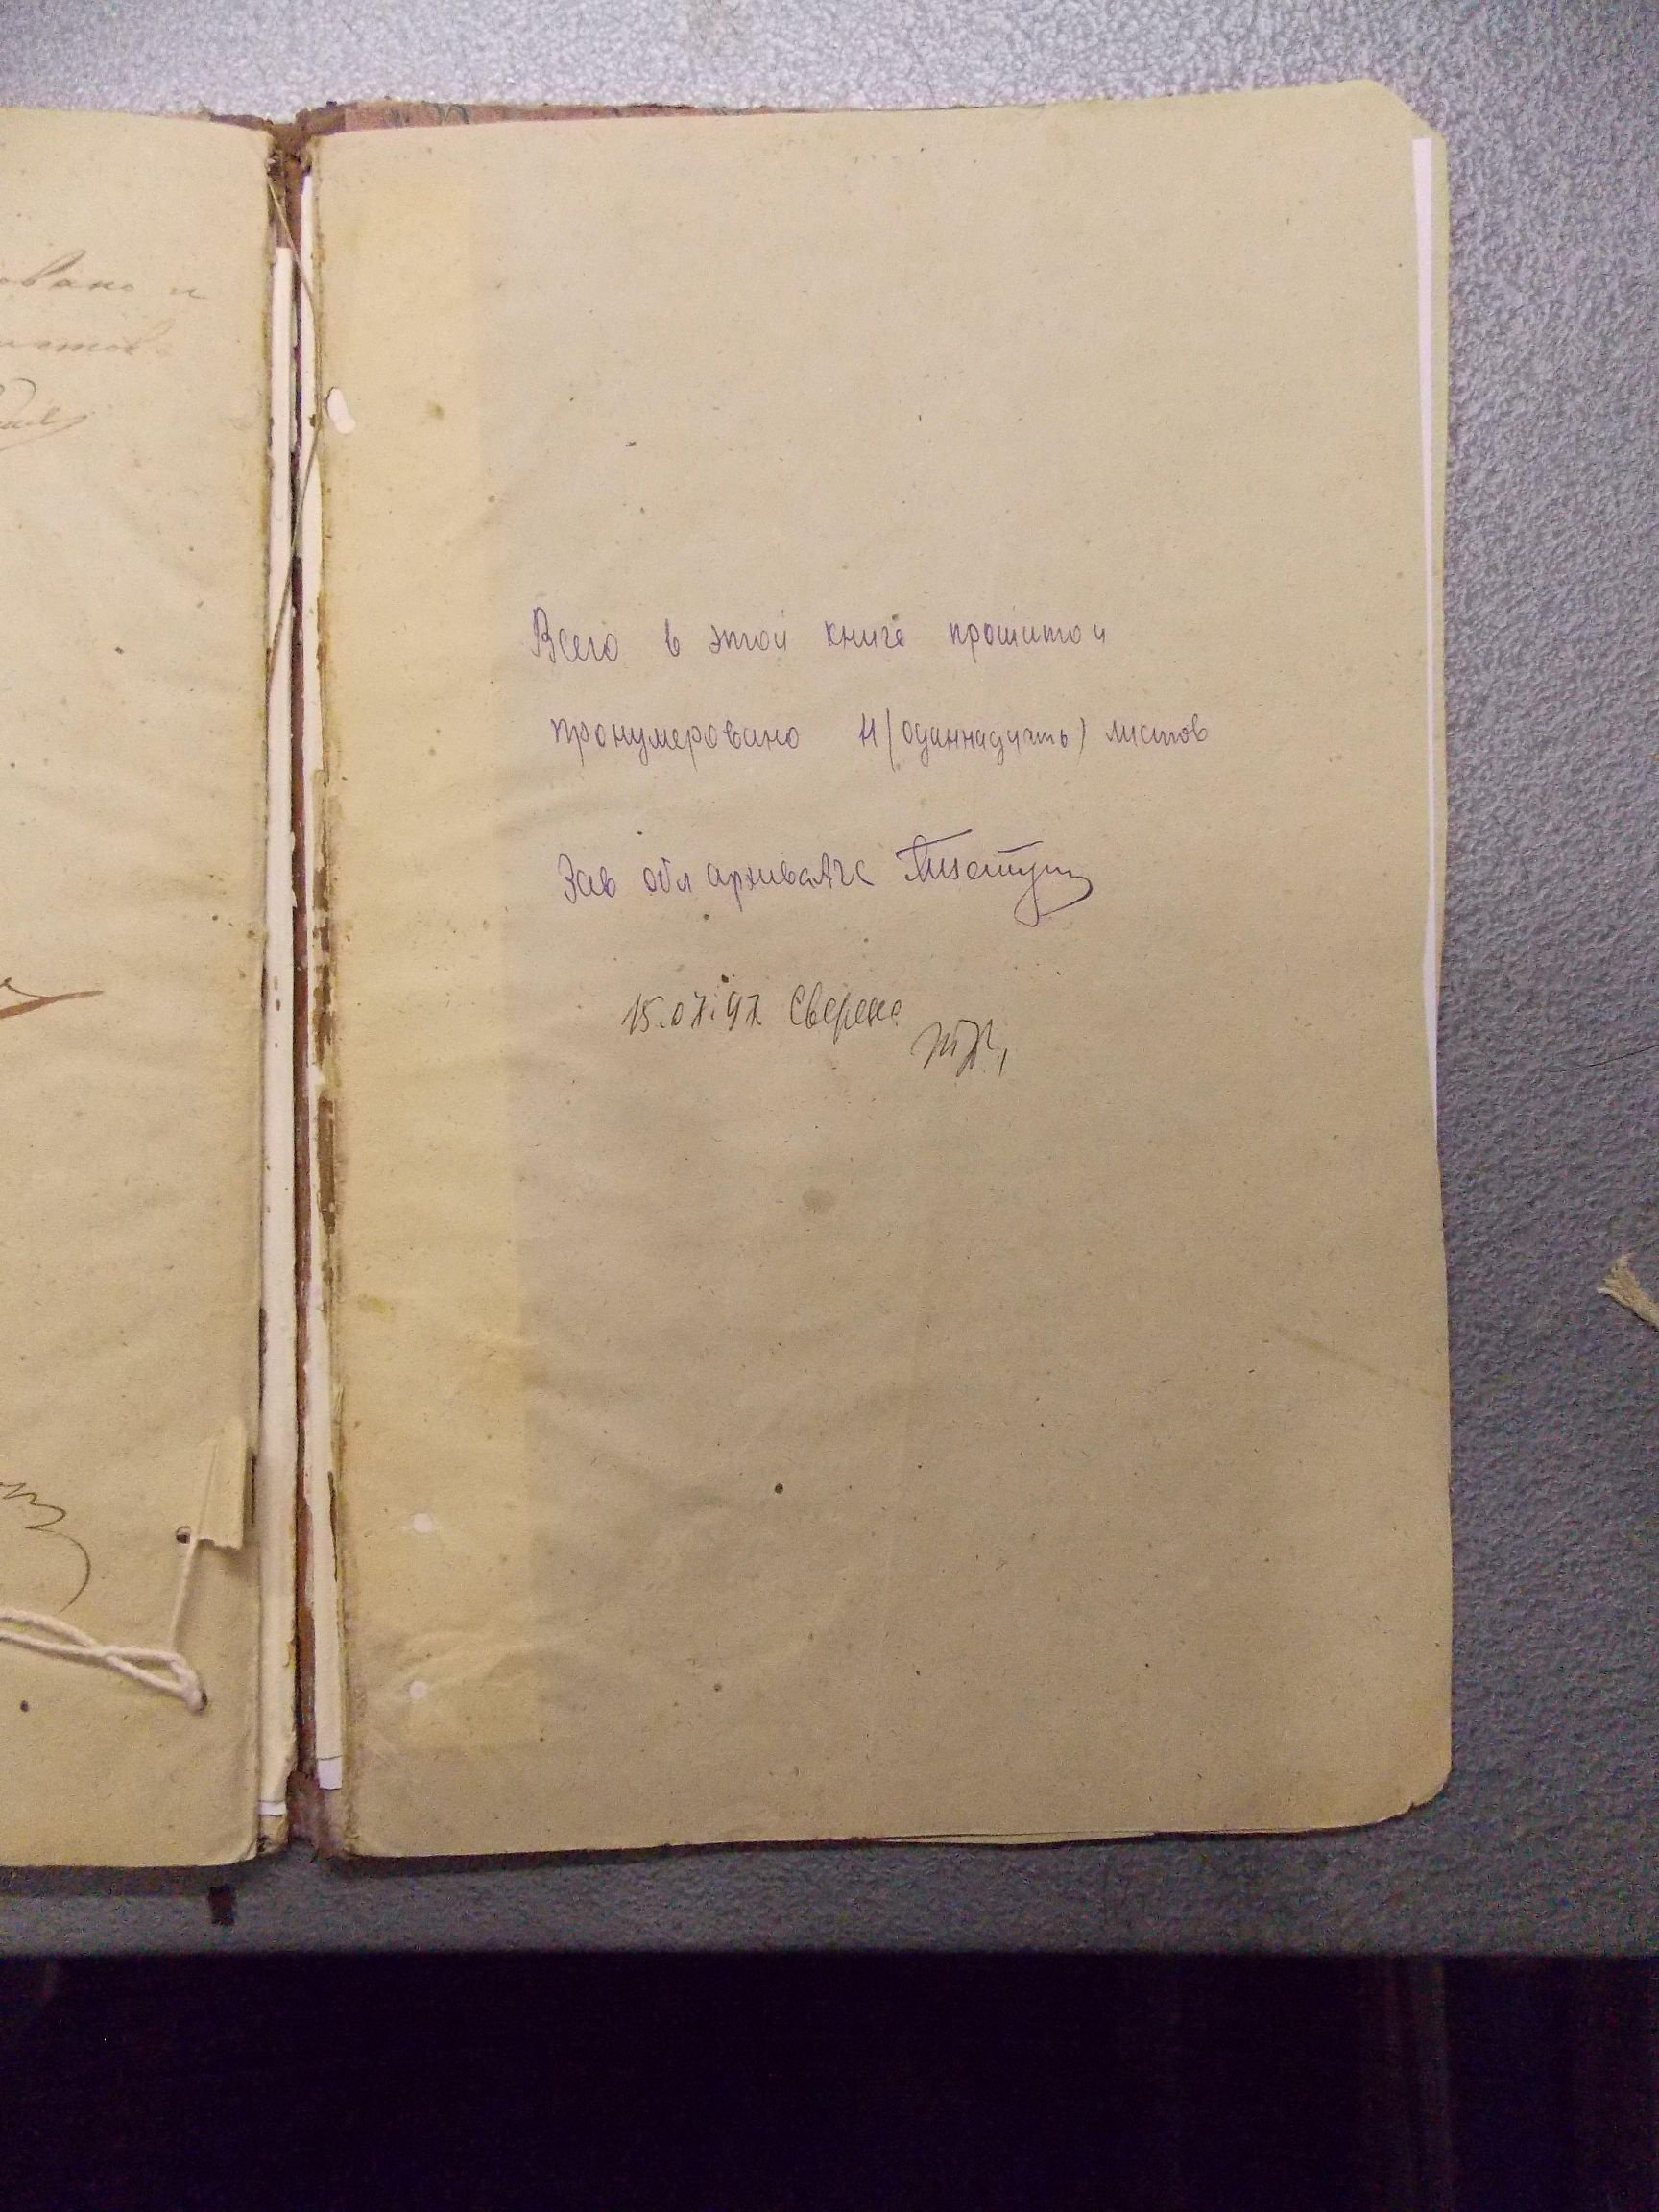 овано и
листов
Всего в этой книге прошитой
пронумеровано 11 (одиннадцать) листов
Зав обл архива
15.07.97 Сверено